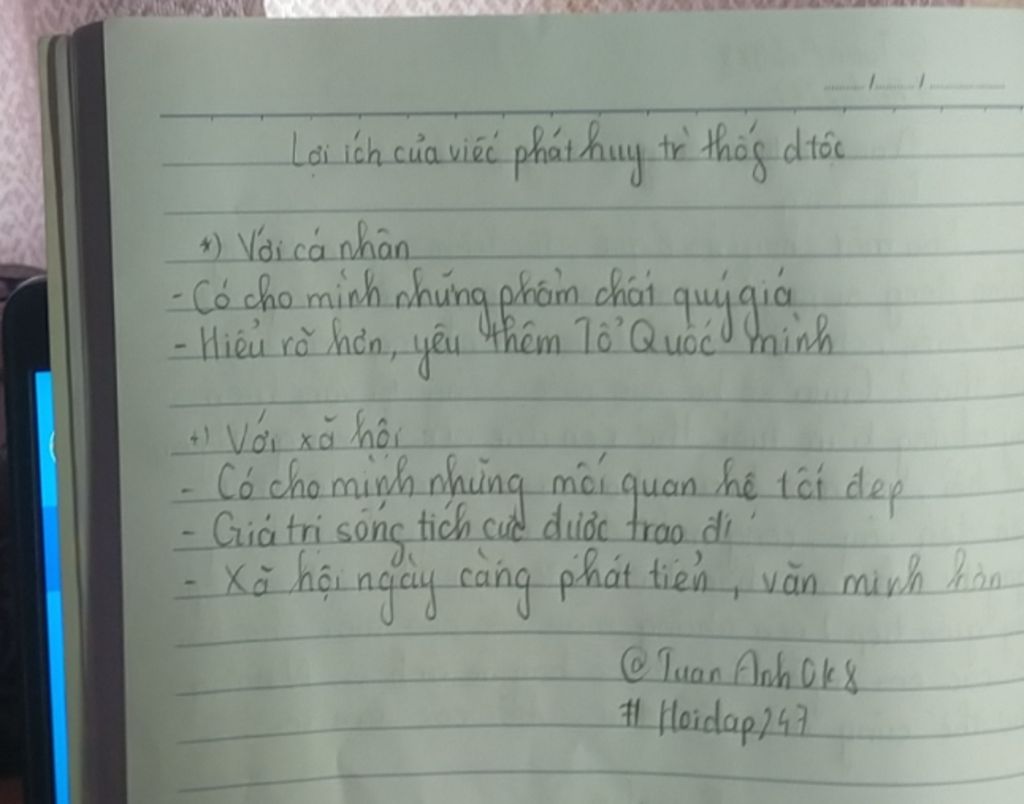 Lợi ích của việc phát huy tr` thốg dtộc
*) Với cá nhân
- Có cho mình những phẩm chất quý giá
- Hiểu rõ hơn, yêu thêm Tổ Quốc mình
+) Với xã hội
- Có cho mình những mối quan hệ tốt đẹp
- Giá trị sống tích cực được trao đi
- Xã hội ngày càng phát tiển, văn minh hơn
@TuanAnhOk8
#Hoidap247